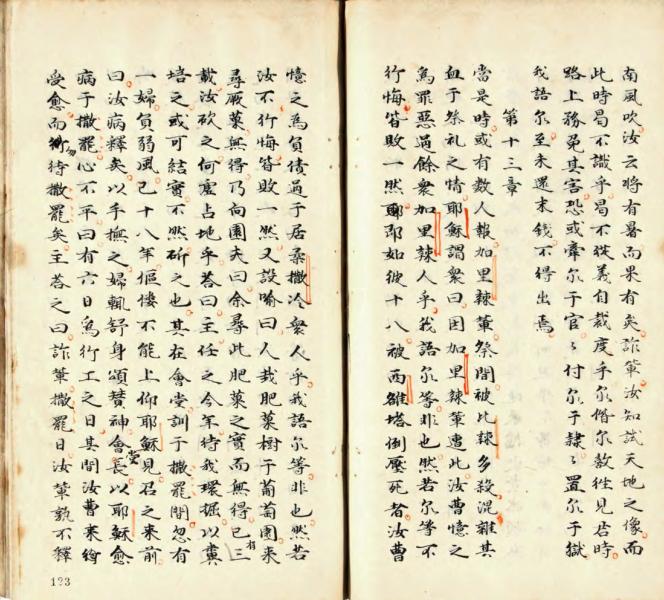 南風吹汝云將有暑而果有矣詐輩汝知試天地之像而
此時曷不識乎曷不從義自裁度乎尔偕尔敎徃見居時
路上務免其害恐或牽尔于官〻付尔于隸〻置尔于獄
我語尔至未還末錢不得出焉
第十三章
當是時或有數人報加里辣輩祭間被比辣多殺混雜其
血于祭礼之情耶穌謂衆曰因加里辣輩遭此汝曹憶之
爲罪惡過餘衆加里辣人乎我語尔等非也然若尔等不
行悔皆敗一然耶卽如彼十八被西雒塔倒壓死者汝曹
憶之爲負債過于居桑撒冷衆人乎我語尔等非也然若
汝不行悔皆敗一然又設喻曰人栽肥菓樹于葡萄園來
尋厥菓無得乃向園夫曰余尋此肥菓之實而無得已有三
載汝砍之何塞占地乎荅曰主任之今年待我環掘以糞
培之或可結實不然斫之也其在會堂訓于撒罷間忽有
一婦負弱風已十八年傴僂不能上仰耶穌見召之來前
曰汝病釋矣以手撫之婦輒舒身頌賛神會堂長以耶穌愈
病于撒罷心不平曰有六日爲行工之日其間汝曹來得
受愈而勿待撒罷矣主荅之曰詐輩撒罷日汝輩孰不釋
123